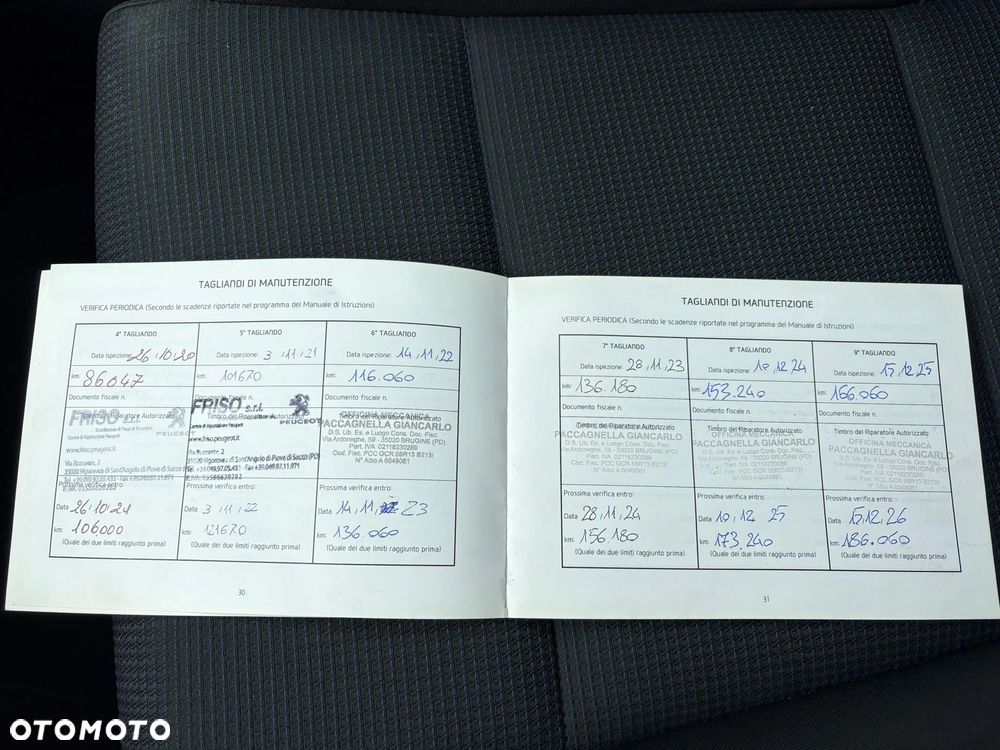 TAGLIANDI DI MANUTENZIONE
VERIFICA PERIODICA (Secondo le scadenze riportate nel programma del Manuale di Istruzioni)
4° TAGLIANDO
Data ispezione: 26/10/20
km: 86047
Documento fiscale n.
Timbro del Riparatore Autorizzato
FRISO s.r.l.
PEUGEOT
Centro di Riparazione Peugeot
www.friso.peugeot.it
Via Rozzente, 2
35020 Vigorovea di Sant'Angelo di Piove di Sacco (PD)
Prossima verifica entro:
Data 26/10/21
km: 106000
(Quale dei due limiti raggiunto prima)
5° TAGLIANDO
Data ispezione: 3/11/21
km: 101670
Documento fiscale n.
Timbro del Riparatore Autorizzato
FRISO s.r.l.
PEUGEOT
Centro di Riparazione Peugeot
www.friso.peugeot.it
Via Rozzente, 2
35020 Vigorovea di Sant'Angelo di Piove di Sacco (PD)
Tel. +39.049.97.05.433 - Fax +39.049.97.11.971
Prossima verifica entro:
Data 3/11/22
km: 121670
(Quale dei due limiti raggiunto prima)
6° TAGLIANDO
Data ispezione: 14,11,22
km: 116.060
Documento fiscale n.
Timbro del Riparatore Autorizzato
OFFICINA MECCANICA
PACCAGNELLA GIANCARLO
D.S. Ub. Es. e Luogo Cons. Doc. Fisc.
Via Ardoneghe, 59 - 35020 BRUGINE (PD)
Part. IVA 02118230289
Cod. Fisc. PCC GCR 55R13 B213I
N° Albo A 6049061
Prossima verifica entro:
Data 14,11, 23
km: 136.060
(Quale dei due limiti raggiunto prima)
30
TAGLIANDI DI MANUTENZIONE
VERIFICA PERIODICA (Secondo le scadenze riportate nel programma del Manuale di Istruzioni)
7° TAGLIANDO
Data ispezione: 28,11,23
km: 136.180
Documento fiscale n.
Timbro del Riparatore Autorizzato
OFFICINA MECCANICA
PACCAGNELLA GIANCARLO
D.S. Ub. Es. e Luogo Cons. Doc. Fisc.
Via Ardoneghe, 59 - 35020 BRUGINE (PD)
Part. IVA 02118230289
Cod. Fisc. PCC GCR 55R13 B213I
N° Albo A 6049061
Prossima verifica entro:
Data 28,11,24
km: 156.180
(Quale dei due limiti raggiunto prima)
8° TAGLIANDO
Data ispezione: 10,12 24
km: 153.240
Documento fiscale n.
Timbro del Riparatore Autorizzato
OFFICINA MECCANICA
PACCAGNELLA GIANCARLO
D.S. Ub. Es. e Luogo Cons. Doc. Fisc.
Via Ardoneghe, 59 - 35020 BRUGINE (PD)
Part. IVA 02118230289
Cod. Fisc. PCC GCR 55R13 B213I
N° Albo A 6049061
Prossima verifica entro:
Data 10,12 25
km: 173.240
(Quale dei due limiti raggiunto prima)
9° TAGLIANDO
Data ispezione: 15,12,25
km: 166.060
Documento fiscale n.
Timbro del Riparatore Autorizzato
OFFICINA MECCANICA
PACCAGNELLA GIANCARLO
D.S. Ub. Es. e Luogo Cons. Doc. Fisc.
Via Ardoneghe, 59 - 35020 BRUGINE (PD)
Part. IVA 02118230289
Cod. Fisc. PCC GCR 55R13 B213I
N° Albo A 6049061
Prossima verifica entro:
Data 15,12,26
km: 186.060
(Quale dei due limiti raggiunto prima)
31
OTOMOTO